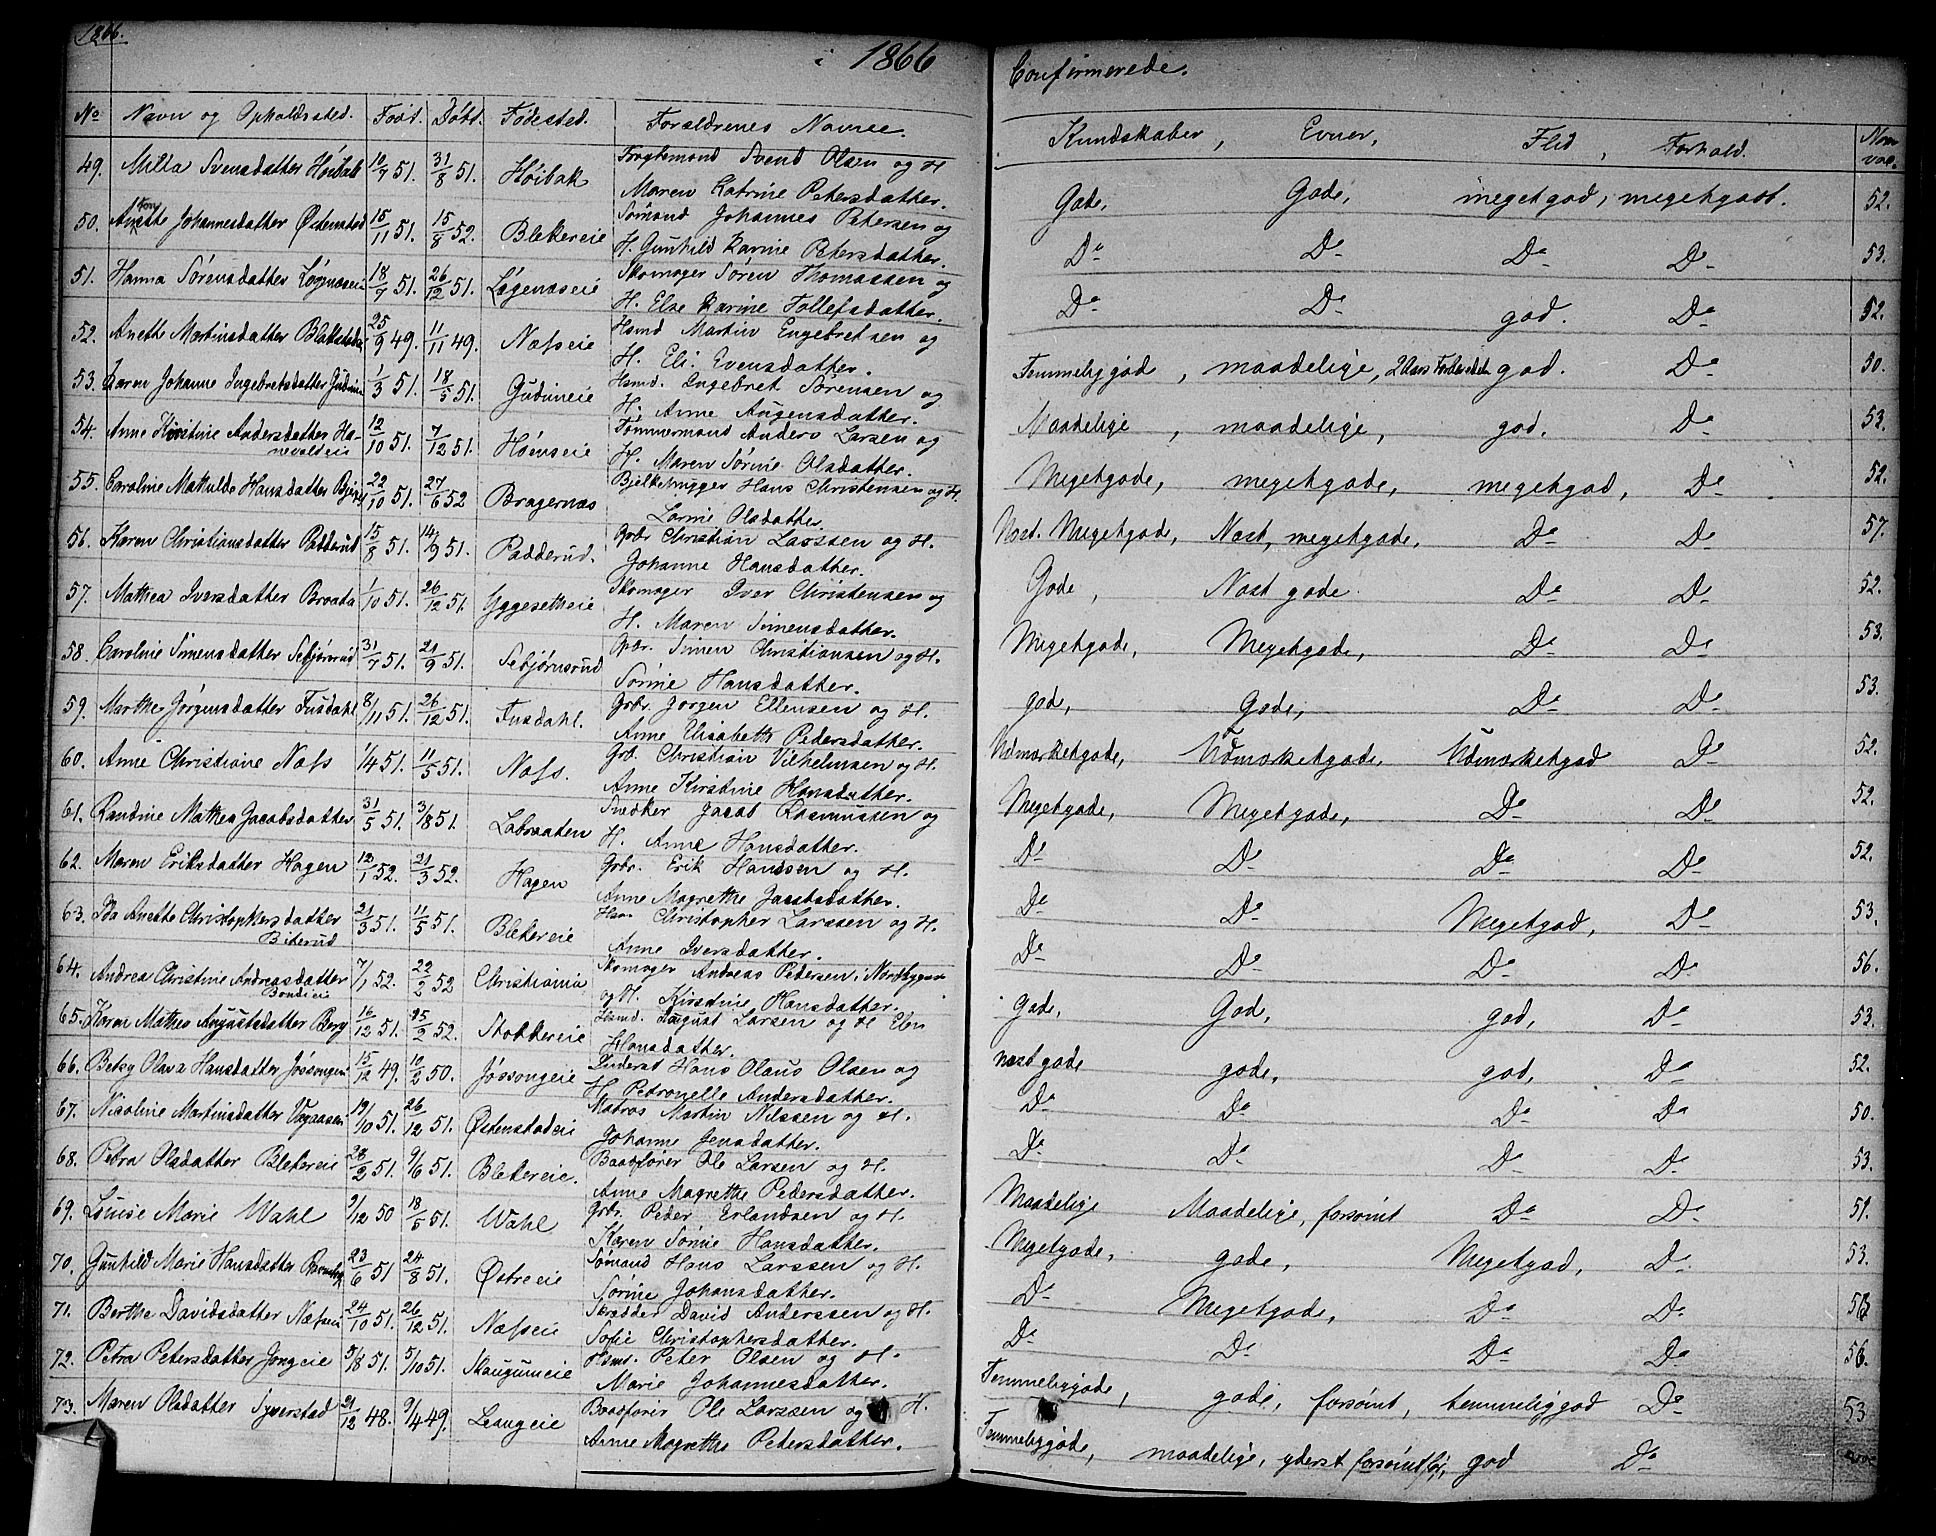 1866.
i 1866
No Navn og Opholdssted. Født. Døbt. Fødested. Forældrenes Navne.
49. Milla Svensdatter Høibak 10/7 51. 31/8 51. Høibak Fragtemand Svend Olsen og H
Maren Katrine Petersdatter.
50. Anette Johannesdatter Østenstad 15/11 51. 15/8 52. Blekereie Sømand Johannes Petersen og
H. Gunhild Karine Petersdatter.
51. Hanna Sørensdatter Løgnæseie 18/7 51. 26/12 51. Løgenæseie Skomager Søren Thomassen og
H. Else Karine Tollefsdatter.
52. Anette Martinsdatter 25/9 49. 11/11 49. Næsseie Hsmd Martin Engebretsen og
H. Eli Evensdatter.
53. Karen Johanne Ingebretsdatter 1/3 51. 18/5 51. Gudimeie Hsmd. Ingebret Sørensen og
H. Anne Augensdatter.
54. Anne Kirstine Andersdatter Ha-
nevoldeie 12/10 51. 7/12 51. Hømseie Tømmermand Anders Larsen og
H. Maren Sørine Olsdatter.
55. Caroline Mathilde Hansdatter 22/10 51. 27/6 52 Bragernæs Bjelkehugger Hans Christensen og H.
Larine Olsdatter.
56. Karen Christiansdatter Padderud 15/8 51. 14/9 51. Padderud. Gpbr Christian Larssen og H.
Johanne Hansdatter.
57. Mathea Iversdatter Braata 1/10 51. 26/12 51. Yggesetheie Skomager Iver Christensen og
H. Maren Simensdatter.
58. Caroline Simensdatter Sebjørnrud 31/7 51. 21/9 51. Sebjørnsrud Gpbr. Simen Christiansen og H.
Sørine Hansdatter.
59. Marthe Jørgensdatter Fusdahl 8/11 51. 26/12 51. Fusdahl. Grbr. Jørgen Ellensen og H.
Anne Elisabeth Pedersdatter.
60. Anne Christiane Næss 1/4 51. 11/5 51. Næss. Grb. Christian Vilhelmsen og H.
Anne Kirstine Hansdatter.
61. Randine Mathea Jacobsdatter 31/5 51. 3/8 51. Labraaten Snedker Jacob Rasmussen og
H. Anne Hansdatter.
62. Maren Eriksdatter Hagen 12/1 52. 21/3 52. Hagen Grbr. Erik Hanssen og H.
Anne Magrethe Jacobsdatter.
63. Ida Anette Christophersdatter
Biterud 21/3 51. 11/5 51. Blekereie Christopher Larssen og H.
Anne Iversdatter.
64. Andrea Christine Andreasdatter
Bondieie 7/1 52. 22/2 52 Christiania Skomager Andreas Pedersen i
og H. Kirstine Hansdatter.
65. Karen Mathea Augustsdatter Berg 16/12 51. 25/2 52. Stokkereie Hsmd. August Larsen og H Elen
Hansdatter.
66. Betsy Olava Hansdatter Jøssongeie 15/12 49. 10/2 50. Jøssongeie Inderst Hans Olaus Olsen og
H Petronelle Andersdatter.
67. Nicoline Martinsdatter 19/10 51. 26/12 51. Østenstadeie Matros Martin Nilssen og H.
Johanne Jensdatter.
68. Petra Olsdatter Blekereie 28/2 51. 9/6 51. Blekereie. Baadfører Ole Larsen og H.
Anne Magrethe Pedersdatter.
69. Lovise Marie Wahl 9/12 50 18/5 51. Wahl Grbr. Peder Erlandsen og H.
Karen Sørine Hansdatter.
70. Gunhild Marie Hansdatter 23/6 51 24/8 51. Østreeie Sømand Hans Larssen og H.
Sørine Johansdatter.
71. Berthe Davidsdatter Næsseie 24/10 51. 26/12 51. Næsseie David Anderssen og H.
Sofie Christophersdatter.
72. Petra Petersdatter Jongeie 5/8 51. 5/10 51. Skaugumeie Hsmd. Peter Olsen og H.
Marie Johannesdatter.
73. Maren Olsdatter Syverstad 21/12 48. 9/4 49. Leangeie Baadfører Ole Larssen og H.
Anne Magrethe Pedersdatter.
Confirmerede.
Kundskaber, Evner, Flid, Forhold.
Gode, Gode, megetgod, megetgodt. 52.
Do Do Do Do 53.
Do Do god. Do 52.
Temmeliggode, maadelige, 2 Aars god. Do 50.
Maadelige, maadelige, god. Do 53.
Megetgode, megetgode, megetgod, Do 52.
Næst. Megetgode, Næst, megetgode, Do Do 57.
Gode, Næst gode Do Do 52.
Megetgode, Megetgode, Do Do 53.
gode, Gode, Do Do 53.
Udmærketgode, Udmærketgode Udmærketgod Do 52.
Megetgode, Megetgode, Do Do 52.
Do Do Do Do 52.
Do Do Megetgod, Do 53.
Do Do Do Do 56.
gode, God, god, Do 53.
næst gode gode, god, Do 52.
Do Do Do Do 50.
Do Do Do Do 53.
Maadelige Maadelige, forsømt Do Do 51.
Megetgode, gode, Megetgod, Do 53.
Do Megetgode, Do Do 53
Do Do Do Do 56.
Temmeliggode, gode, forsømt, temmeliggod Do 53
Temmeliggode, maadelige, yderst god Do